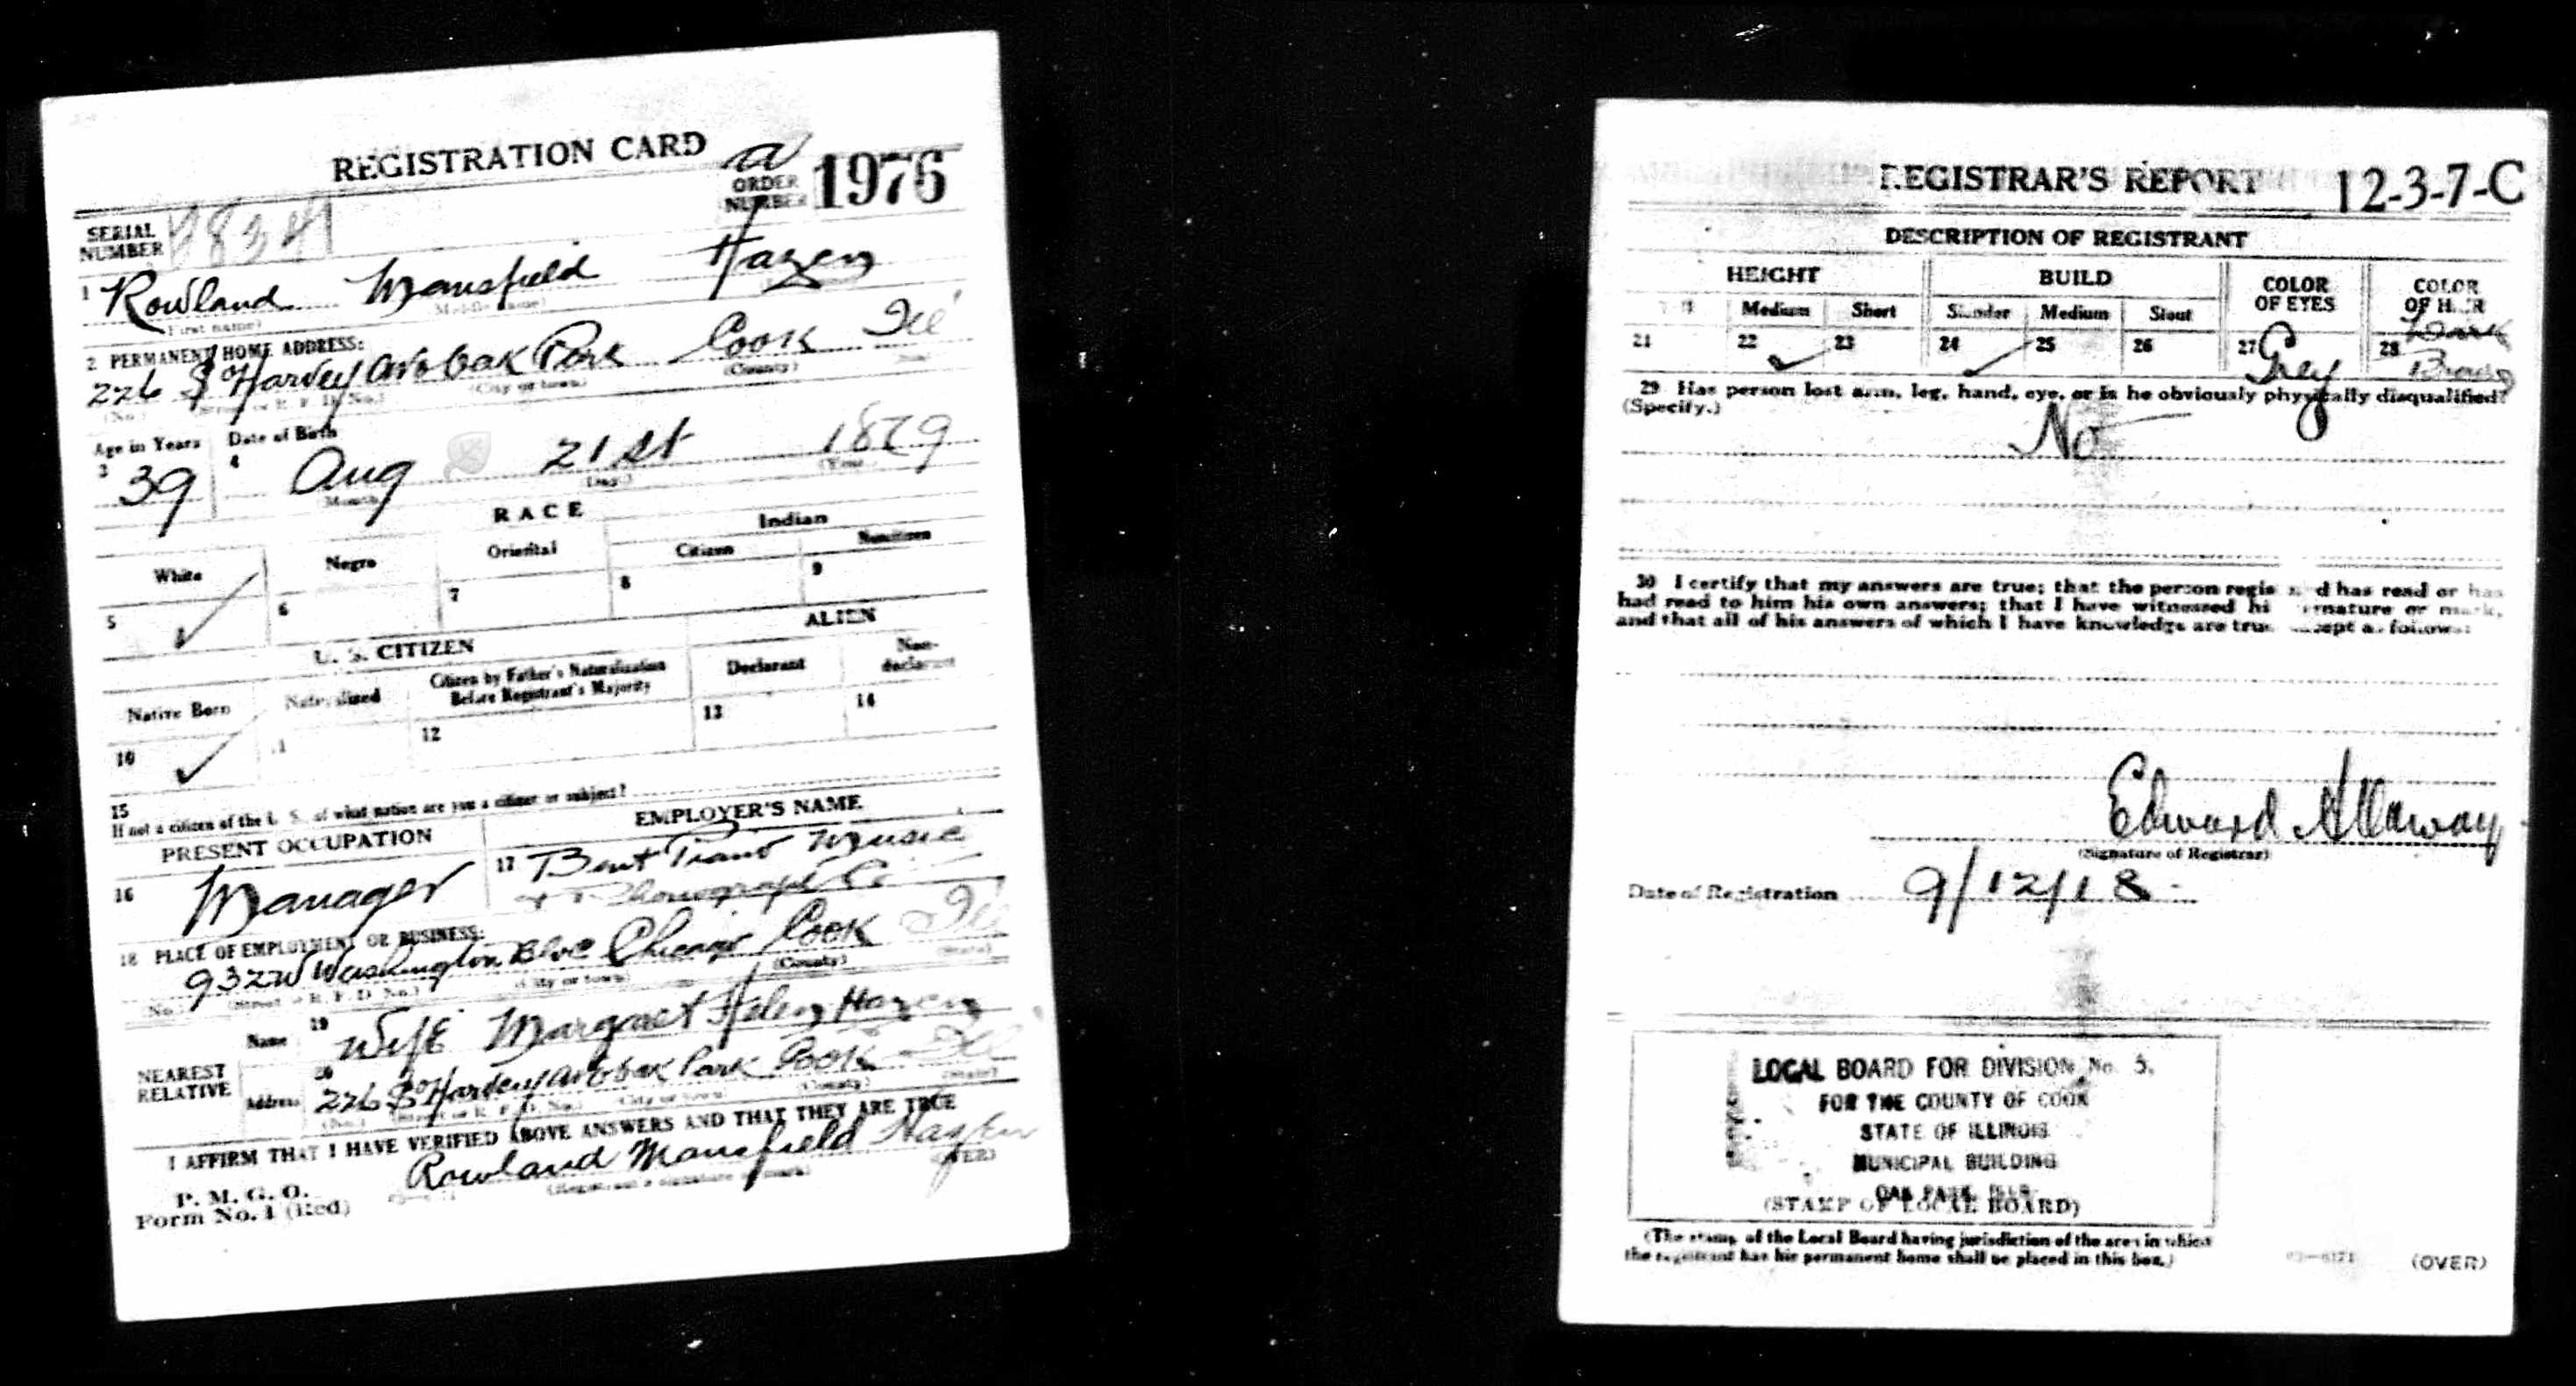 REGISTRATION CARD
a
ORDER NUMBER 1976
SERIAL NUMBER
1 Rowland Mansfield Hazen
(First name) (Middle name)
2 PERMANENT HOME ADDRESS:
226 So Harvey Ave Oak Park Cook Ill
(No.) (Street or R. F. D. No.) (City or town) (County) (State)
Age in Years Date of Birth
3 39 4 Aug 21st 1879
(Month) (Day) (Year)
RACE
White Negro Oriental Indian
Citizen Noncitizen
5 ✓ 6 7 8 9
U. S. CITIZEN ALIEN
Native Born Naturalized Citizen by Father's Naturalization Before Registrant's Majority Declarant Non-declarant
10 ✓ 11 12 13 14
15 If not a citizen of the U. S. of what nation are you a citizen or subject?
PRESENT OCCUPATION EMPLOYER'S NAME
16 Manager 17 Bent Piano Music
& Phonograph Co
18 PLACE OF EMPLOYMENT OR BUSINESS:
932 W Washington Blvd Chicago Cook Ill
(No.) (Street or R. F. D. No.) (City or town) (County) (State)
NEAREST RELATIVE
Name 19 Wife Margaret Helen Hazen
Address 20 226 So Harvey Ave Oak Park Cook Ill
(No.) (Street or R. F. D. No.) (City or town) (County) (State)
I AFFIRM THAT I HAVE VERIFIED ABOVE ANSWERS AND THAT THEY ARE TRUE
Rowland Mansfield Hazen
P. M. G. O.
Form No. 1 (Red) (Registrant's signature or mark) (OVER)
REGISTRAR'S REPORT 12-3-7-C
DESCRIPTION OF REGISTRANT
HEIGHT BUILD COLOR OF EYES COLOR OF HAIR
Medium Short Slender Medium Stout
21 22 ✓ 23 24 ✓ 25 26 27 Grey 28 Dark Brown
29 Has person lost arm, leg, hand, eye, or is he obviously physically disqualified?
(Specify.)
No
30 I certify that my answers are true; that the person registered has read or has
had read to him his own answers; that I have witnessed his signature or mark,
and that all of his answers of which I have knowledge are true, except as follows:
Edward Allaway
(Signature of Registrar)
Date of Registration 9/12/18
LOCAL BOARD FOR DIVISION No. 5,
FOR THE COUNTY OF COOK
STATE OF ILLINOIS
MUNICIPAL BUILDING
OAK PARK, ILLS.
(STAMP OF LOCAL BOARD)
(The stamp of the Local Board having jurisdiction of the area in which
the registrant has his permanent home shall be placed in this box.)
(OVER)